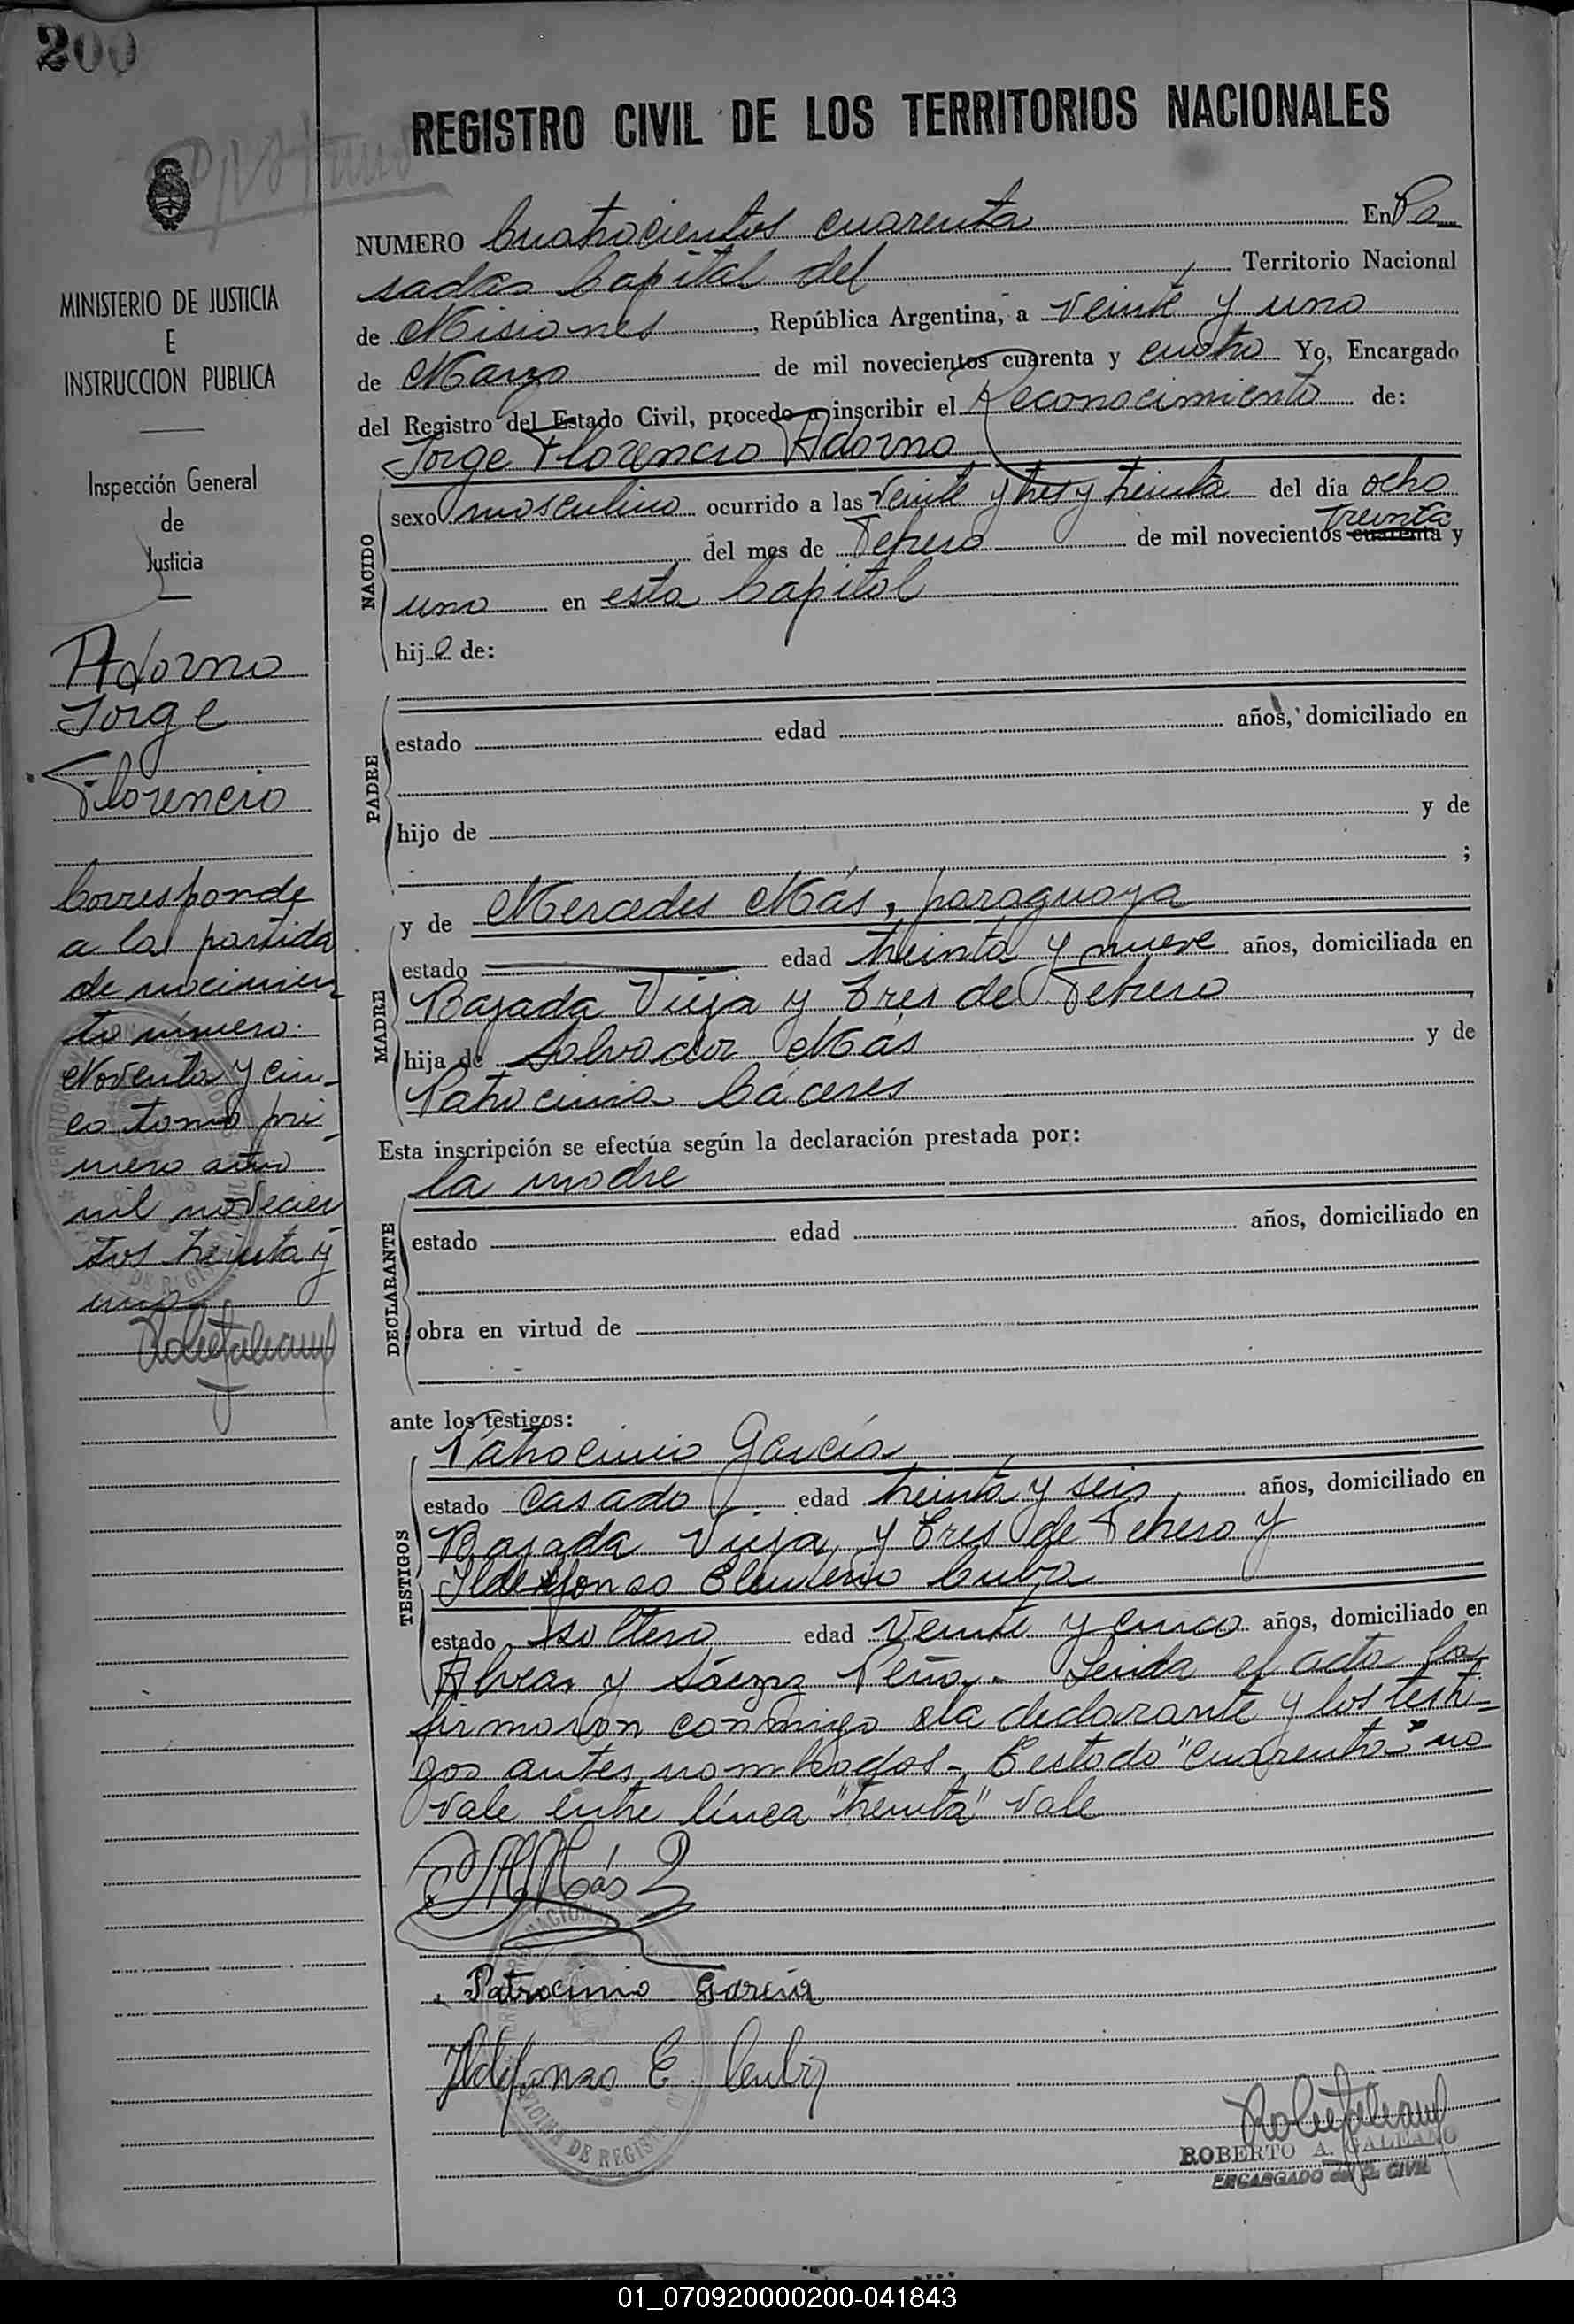 200
REGISTRO CIVIL DE LOS TERRITORIOS NACIONALES
MINISTERIO DE JUSTICIA
E
INSTRUCCION PUBLICA
Inspección General
de
Justicia
Adorno
Jorge
Florencio
Corresponde
a la partida
de nacimien
to número:
Noventa y cin-
co tomo pri-
mero año
mil novecien
tos treinta y
uno
NUMERO Cuatrocientos cuarenta En Po
sadas Capital del Territorio Nacional
de Misiones, República Argentina, a veinte y uno
de Marzo de mil novecientos cuarenta y cuatro Yo, Encargado
del Registro del Estado Civil, procedo a inscribir el Reconocimiento de:
Jorge Florencio Adorno
NACIDO
sexo masculino ocurrido a las veinte y tres y treinta del día ocho
treinta
del mes de Febrero de mil novecientos cuarenta y
uno en esta Capital
hijo de:
PADRE
estado edad años, domiciliado en
hijo de y de
;
MADRE
y de Mercedes Más, paraguaya
estado edad treinta y nueve años, domiciliada en
Bajada Vieja y tres de Febrero
hija de Salvador Más y de
Patrocinia Cáceres
Esta inscripción se efectúa según la declaración prestada por:
la madre
DECLARANTE
estado edad años, domiciliado en
obra en virtud de
ante los testigos:
TESTIGOS
Patrocinio García
estado casado edad treinta y seis años, domiciliado en
Bajada Vieja y tres de Febrero y
Ildefonso Eleuterio Cuba
estado soltero edad veinte y cinco años, domiciliado en
Alvear y Sáenz Peña.- Leida el acta la
firmaron conmigo la declarante y los testi-
gos antes nombrados.- Testado "cuarenta" no
vale entre línea "treinta" vale
M Más
Patrocinio García
Ildefonso E. Cuba
ROBERTO A. GALEANO
ENCARGADO del R. CIVIL
01_070920000200-041843